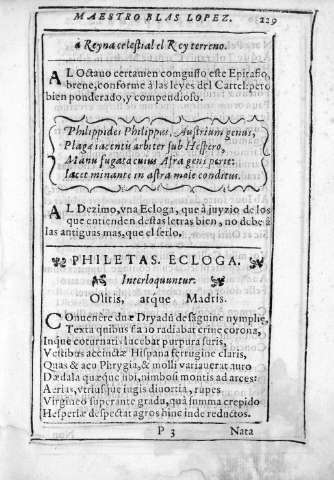 MAESTRO BLAS LOPEZ. 229
à Reyna celestial el Rey terreno.
AL Octauo certamen com gusto este Epitafio,
breue, conforme à las leyes del Cartel: pero
bien ponderado, y compendioso.
Philippides Philippus, Austrium genus,
Plaga iacentis arbiter sub Hespero,
Manu fugata cuius Afra gens perit:
Iacet minante in astra mole conditus.
AL Dezimo, vna Ecloga, que à juyzio de los
que entienden destas letras bien, no debe à
las antiguas mas, que el serlo.
PHILETAS. ECLOGA.
Interloquuntur.
Olitis, atque Madris.
COnuenere duæ Dryadū de sāguine nymphę,
Texta quibus radiabat crine corona,
Inque coturnati iacebar purpura suris,
Vestibus accinctæ Hispana ferrugine claris,
Quas & acu Phrygia, & molli variauerat auro
Dædala quæque sibi, nimbosi montis ad arces:
Aerias, vtriusque iugis diuortia, rupes
Virgineo superante gradu, quà summa crepido
Hesperiæ despectat agros hinc inde reductos.
P 3 Nata